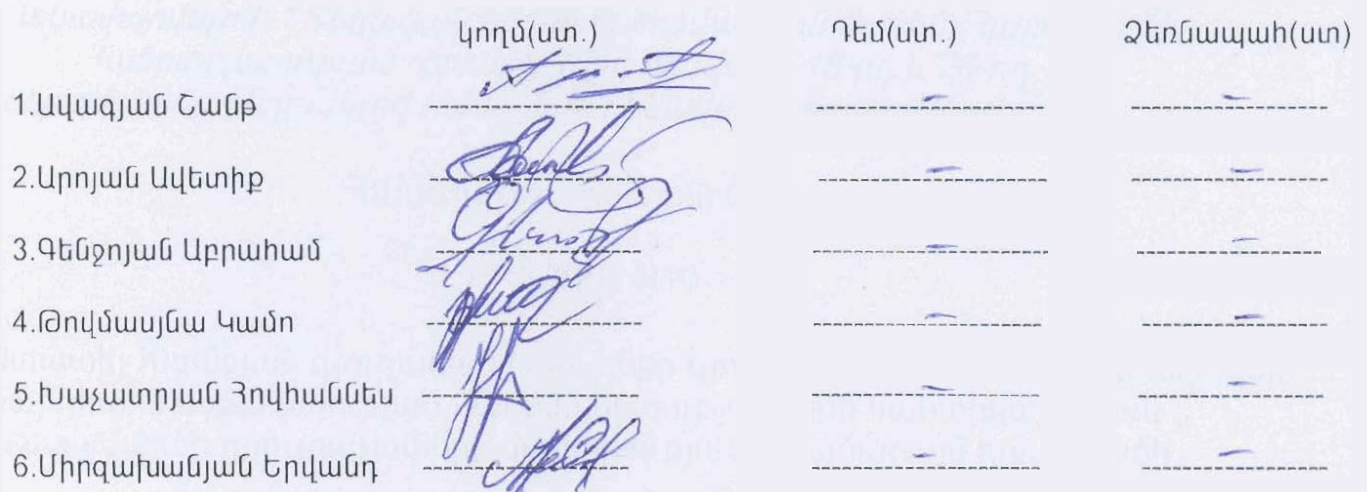 կողմ(ստ.) Դեմ(ստ.) Ձեռնապահ(ստ)
1.Ավագյան Նանթ – –
2.Արոյան Ավետիք – –
3.Գենջոյան Աբրահամ – –
4.Թովմասյնա Կամո – –
5.Խաչատրյան Հովհաննես – –
6.Միրզախանյան Երվանդ – –